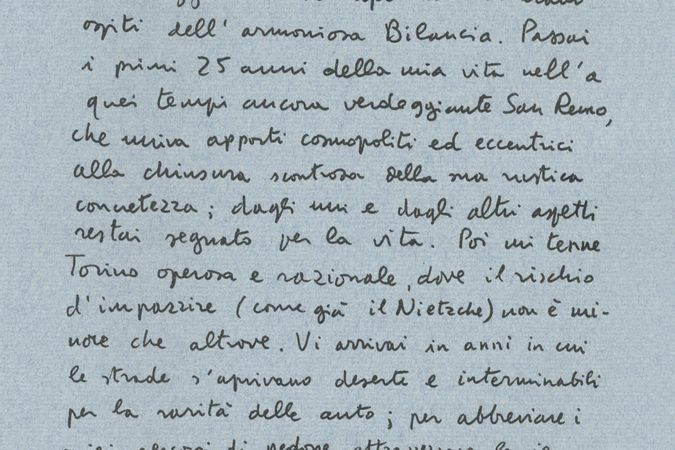 ospiti dell'armoniosa Bilancia. Passai
i primi 25 anni della mia vita nell'a
quei tempi ancora verdeggiante San Remo,
che univa apporti cosmopoliti ed eccentrici
alla chiusura scontrosa della sua rustica
concretezza; dagli uni e dagli altri aspetti
restai segnato per la vita. Poi mi tenne
Torino operosa e razionale, dove il rischio
d'impazzire (come già il Nietzche) non è mi-
nore che altrove. Vi arrivai in anni in cui
le strade s'aprivano deserte e interminabili
per la rarità delle auto; per abbreviare i
di pedone